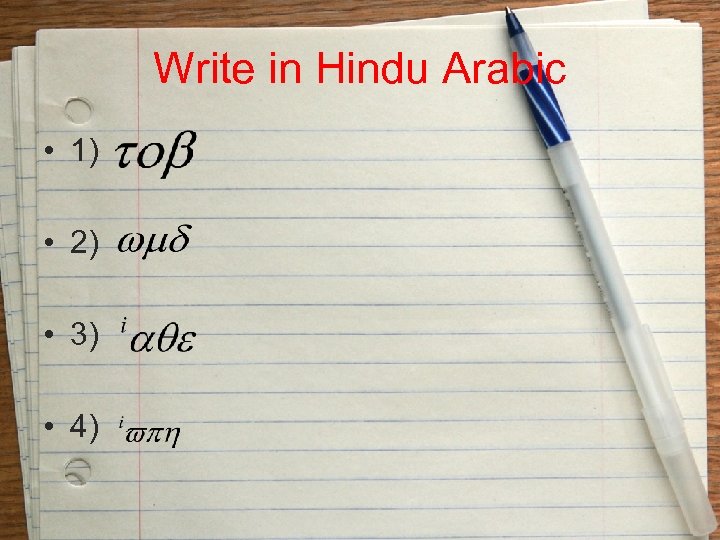 Write in Hindu Arabic
• 1) τοβ
• 2) ωμδ
• 3) ⁱαθε
• 4) ⁱϖπη